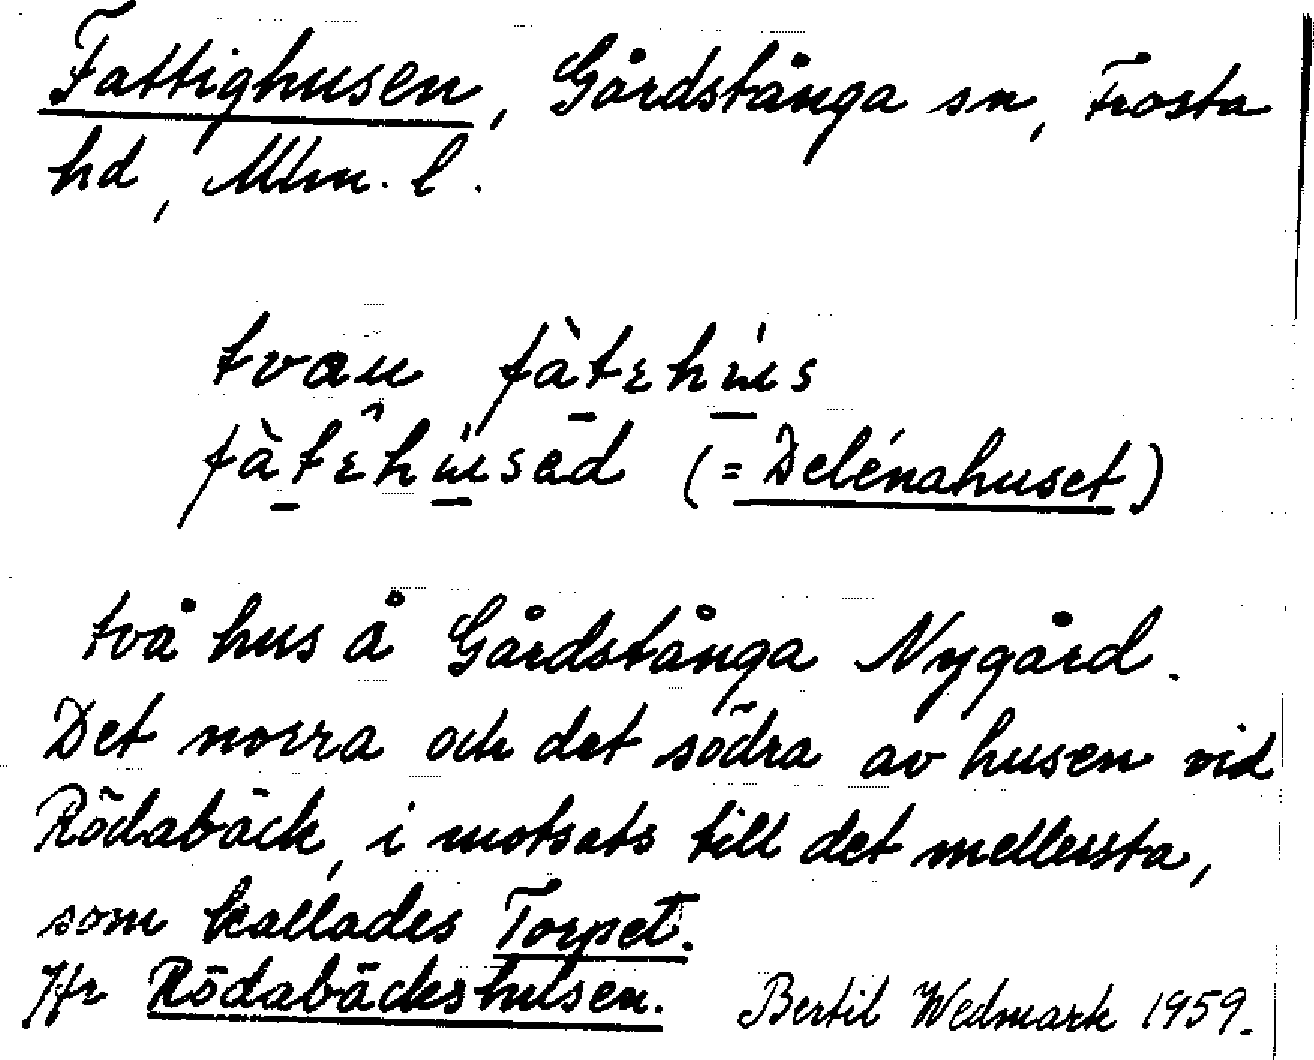 Fattighusen, Gårdstånga sn, Frosta
hd, Mlm. l.
två hus å Gårdstånga Nygård.
Det norra och det södra av husen vid
Rödabäck, i motsats till det mellersta,
som kallades Torpet.
Jfr Rödabäckshusen. Bertil Wedmark 1959.
(= Delénahuset)